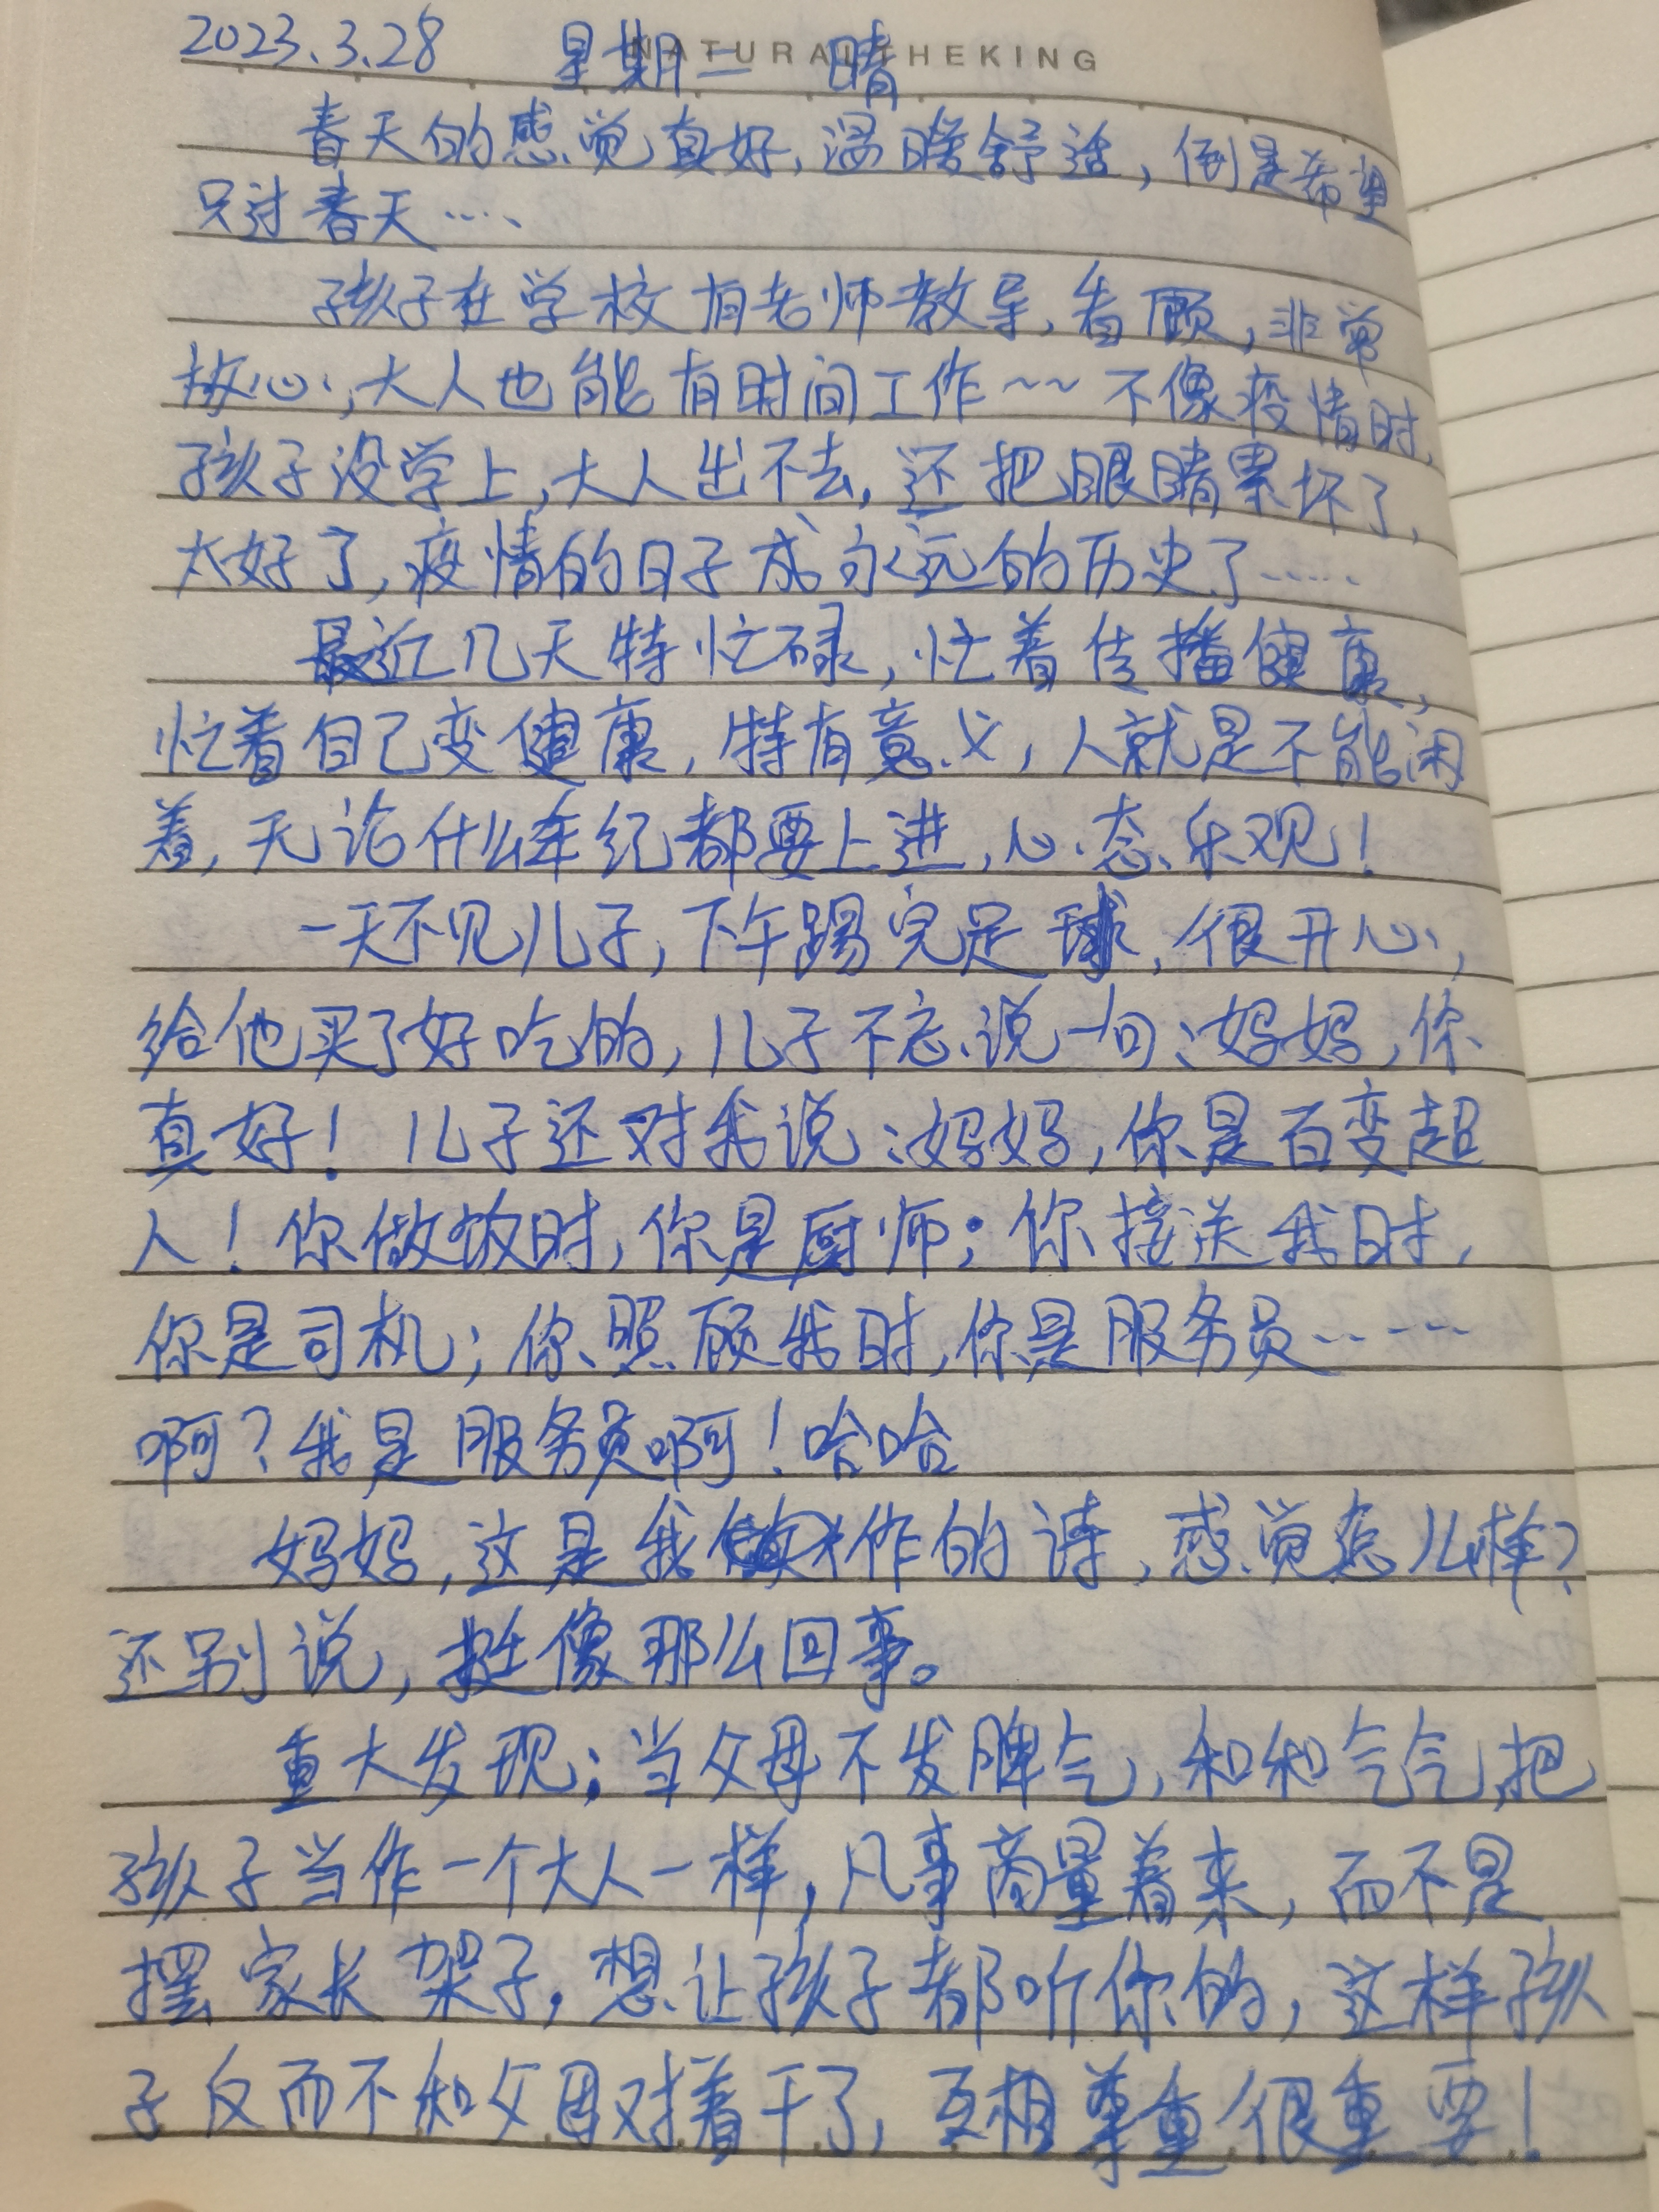 NATURAL THEKING
2023.3.28 星期二 晴
春天的感觉真好,温暖舒适,倒是希望
只过春天……
孩子在学校有老师教导,看顾,非常
放心,大人也能有时间工作~~不像疫情时,
孩子没学上,大人出不去,还把眼睛累坏了,
太好了,疫情的日子成永远的历史了……
最近几天特忙碌,忙着传播健康,
忙着自己变健康,特有意义,人就是不能闲
着,无论什么年纪都要上进,心态乐观!
一天不见儿子,下午踢完足球,很开心,
给他买了好吃的,儿子不忘说一句:妈妈,你
真好!儿子还对我说:妈妈,你是百变超
人!你做饭时,你是厨师;你接送我时,
你是司机;你照顾我时,你是服务员……
啊?我是服务员啊!哈哈
妈妈,这是我作的诗,感觉怎么样?
还别说,挺像那么回事。
重大发现:当父母不发脾气,和和气气,把
孩子当作一个大人一样,凡事商量着来,而不是
摆家长架子,想让孩子都听你的,这样孩
子反而不和父母对着干了,互相尊重很重要!